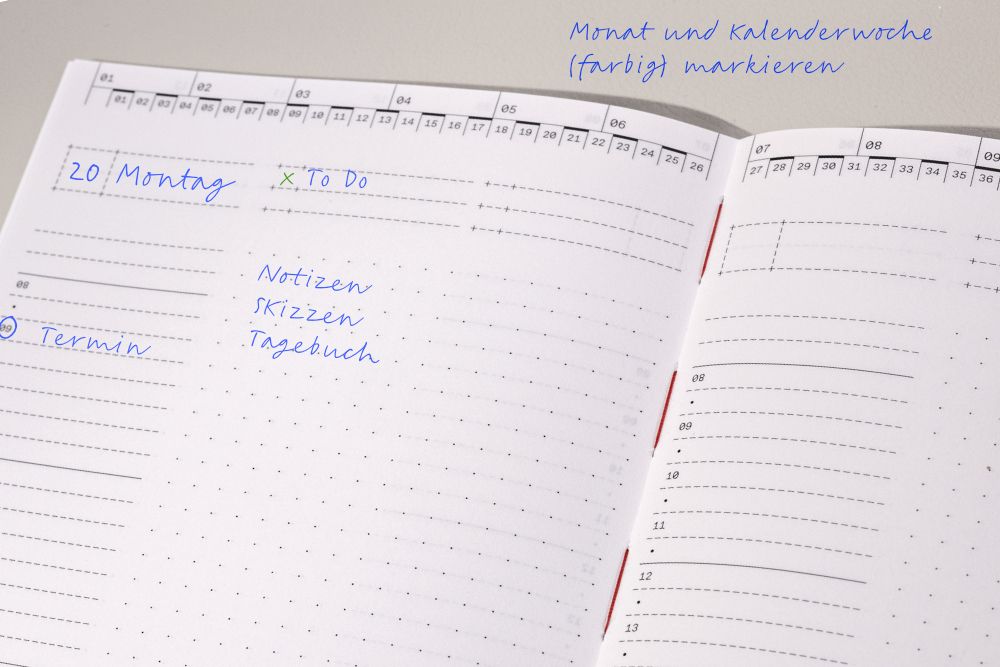 Monat und Kalenderwoche
(farbig) markieren
01 02 03 04 05 06
01 02 03 04 05 06 07 08 09 10 11 12 13 14 15 16 17 18 19 20 21 22 23 24 25 26
07 08 09
27 28 29 30 31 32 33 34 35 36
20 Montag
x To Do
Notizen
Skizzen
Tagebuch
08
09 Termin
08
09
10
11
12
13